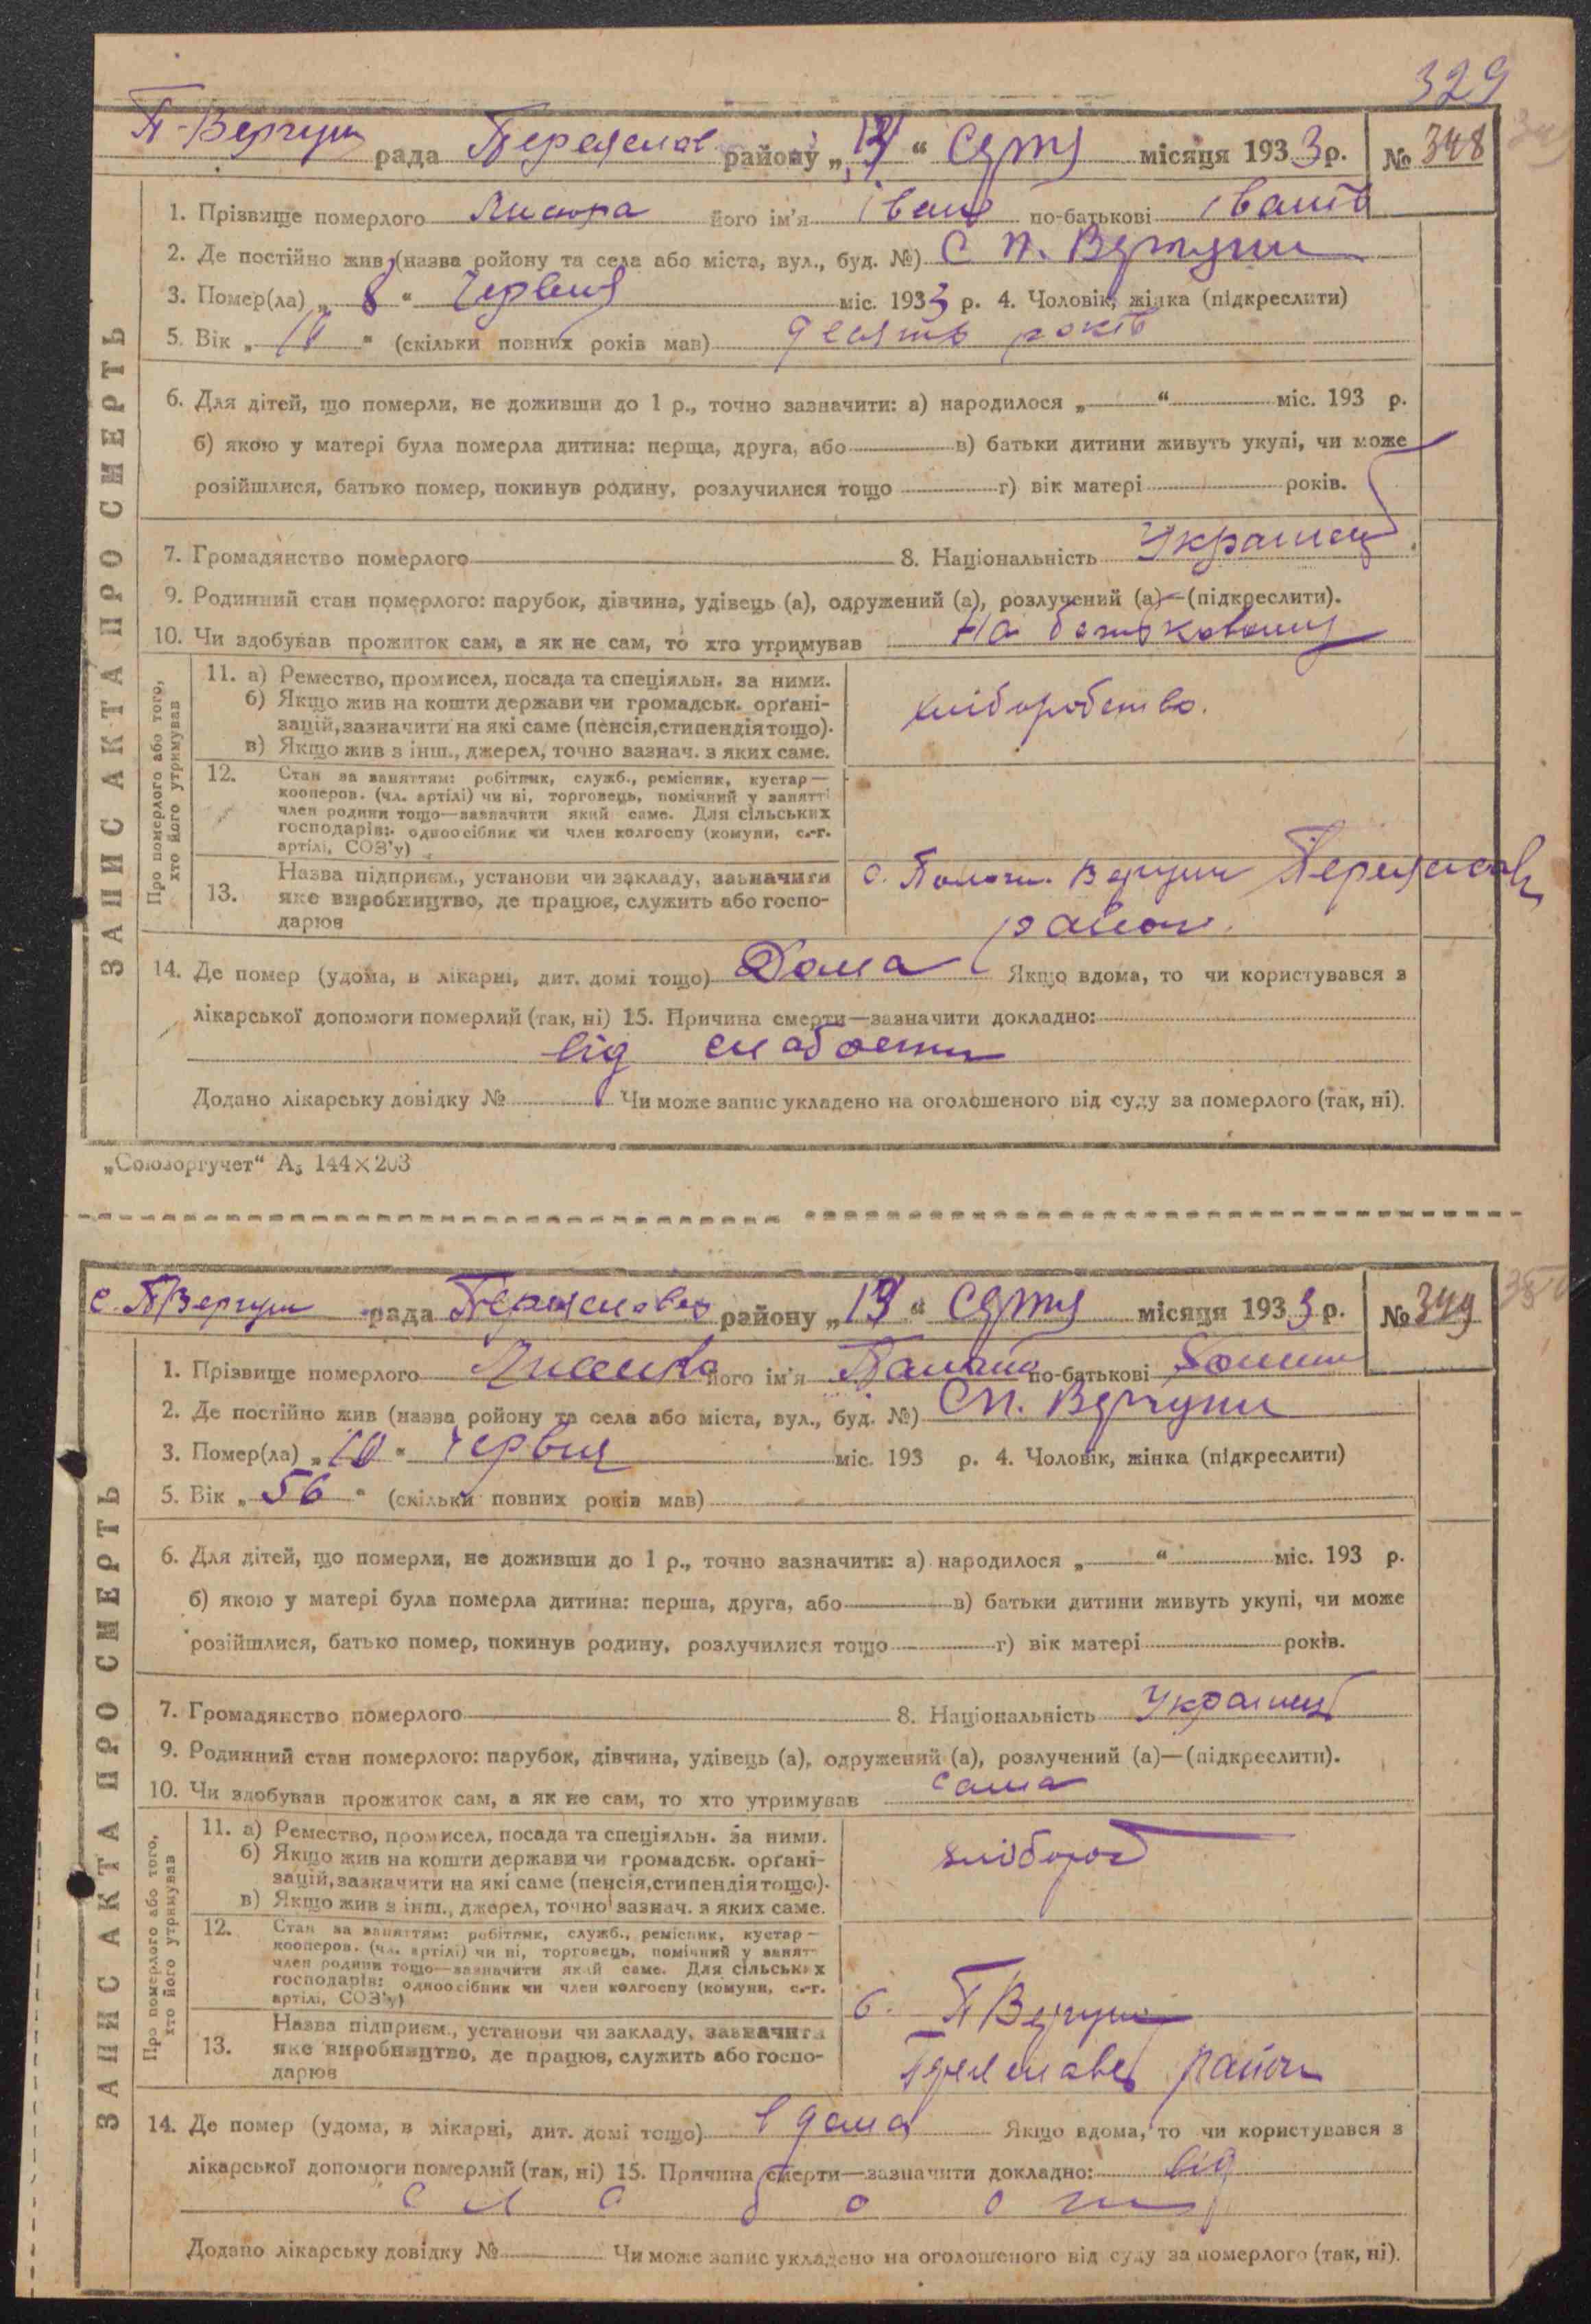 329
П-Вергун рада Переяслав району „13“ Серпня місяця 1933 р. № 348
ЗАПИС АКТА ПРО СМЕРТЬ
1. Прізвище померлого його ім'я Іван по-батькові
2. Де постійно жив (назва району та села або міста, вул., буд. №) С П. Вергуни
3. Помер(ла) „8“ Червня міс. 1933 р. 4. Чоловік, жінка (підкреслити)
5. Вік „10“ (скільки повних років мав) десять років
6. Для дітей, що померли, не доживши до 1 р., точно зазначити: а) народилося „ “ міс. 193 р.
б) якою у матері була померла дитина: перша, друга, або в) батьки дитини живуть укупі, чи може
розійшлися, батько помер, покинув родину, розлучилися тощо г) вік матері років.
7. Громадянство померлого 8. Національність Українец
9. Родинний стан померлого: парубок, дівчина, удівець (а), одружений (а), розлучений (а)—(підкреслити).
10. Чи здобував прожиток сам, а як не сам, то хто утримував На
Про померлого або того, хто його утримував
11. а) Ремество, промисел, посада та спеціяльн. за ними.
б) Якщо жив на кошти держави чи громадськ. орґані-
зацій, зазначити на які саме (пенсія, стипендія тощо).
в) Якщо жив з інш., джерел, точно зазнач. з яких саме.
хліборобство.
12. Стан за заняттям: робітник, служб., ремісник, кустар—
кооперов. (чл. артілі) чи ні, торговець, помічний у занятті
член родини тощо—зазначити який саме. Для сільських
господарів: одноосібник чи член колгоспу (комуни, с.-г.
артілі, СОЗ'у)
13. Назва підприєм., установи чи закладу, зазначити
яке виробництво, де працює, служить або госпо-
дарює
с. Вергуни
район.
14. Де помер (удома, в лікарні, дит. домі тощо) Дома Якщо вдома, то чи користувався з
лікарської допомоги померлий (так, ні) 15. Причина смерти—зазначити докладно:
від слабости
Додано лікарську довідку № Чи може запис укладено на оголошеного від суду за померлого (так, ні).
„Союзоргучет“ А5 144×203
с. П Вергуни рада район у „13“ Серпня місяця 1933 р. № 349
ЗАПИС АКТА ПРО СМЕРТЬ
1. Прізвище померлого його ім'я по-батькові
2. Де постійно жив (назва району та села або міста, вул., буд. №) С П. Вергуни
3. Помер(ла) „10“ Червня міс. 193 р. 4. Чоловік, жінка (підкреслити)
5. Вік „56“ (скільки повних років мав)
6. Для дітей, що померли, не доживши до 1 р., точно зазначити: а) народилося „ “ міс. 193 р.
б) якою у матері була померла дитина: перша, друга, або в) батьки дитини живуть укупі, чи може
розійшлися, батько помер, покинув родину, розлучилися тощо г) вік матері років.
7. Громадянство померлого 8. Національність Українец
9. Родинний стан померлого: парубок, дівчина, удівець (а), одружений (а), розлучений (а)—(підкреслити).
10. Чи здобував прожиток сам, а як не сам, то хто утримував сама
Про померлого або того, хто його утримував
11. а) Ремество, промисел, посада та спеціяльн. за ними.
б) Якщо жив на кошти держави чи громадськ. орґані-
зацій, зазначити на які саме (пенсія, стипендія тощо).
в) Якщо жив з інш., джерел, точно зазнач. з яких саме.
хлібороб
12. Стан за заняттям: робітник, служб., ремісник, кустар—
кооперов. (чл. артілі) чи ні, торговець, помічний у занят-
член родини тощо—зазначити який саме. Для сільських
господарів: одноосібник чи член колгоспу (комуни, с.-г.
артілі, СОЗ'у)
13. Назва підприєм., установи чи закладу, зазначити
яке виробництво, де працює, служить або госпо-
дарює
с. П Вергуни
район
14. Де помер (удома, в лікарні, дит. домі тощо) вдома Якщо вдома, то чи користувався з
лікарської допомоги померлий (так, ні) 15. Причина смерти—зазначити докладно: від
слабости
Додано лікарську довідку № Чи може запис укладено на оголошеного від суду за померлого (так, ні).